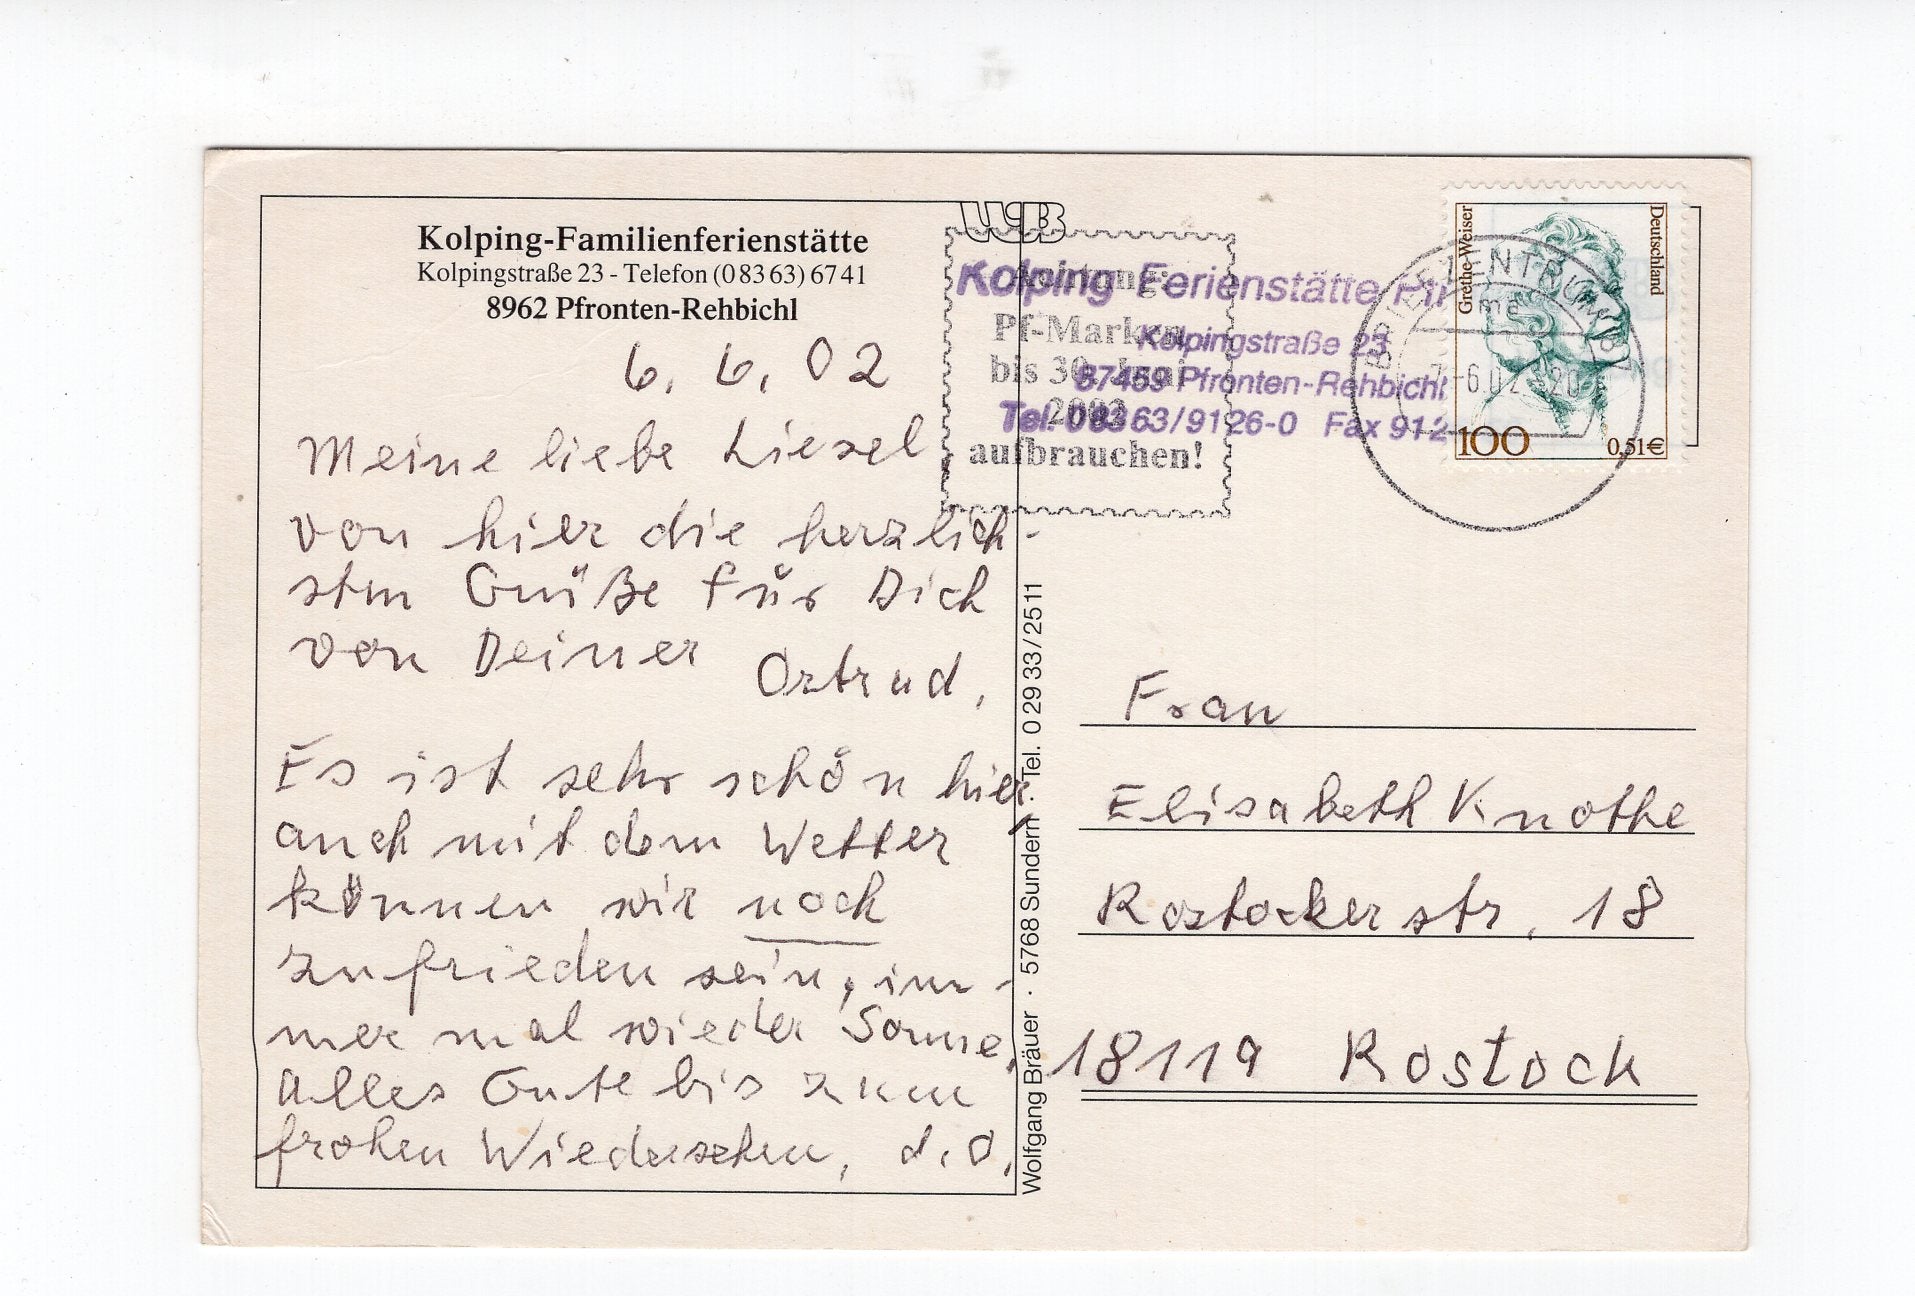 Kolping-Familienferienstätte
Kolpingstraße 23 - Telefon (0 83 63) 67 41
8962 Pfronten-Rehbichl
6. 6. 02
Meine liebe Liesel,
von hier die herzlich-
sten Grüße für Dich
von Deiner
Ortrud,
Es ist sehr schön hier
auch mit dem Wetter
können wir noch
zufrieden sein, im-
mer mal wieder Sonne,
Alles Gute bis zum
frohen Wiedersehen, d. O.
Wolfgang Bräuer · 5768 Sundern · Tel. 0 29 33 / 25 11
Achtung:
Pf-Marken
bis 30. Juni
2002
aufbrauchen!
Kolping Ferienstätte
Kolpingstraße 23
87459 Pfronten-Rehbichl
Tel. 0 83 63/91 26-0 Fax 91 2
BRIEFZENTRUM
-6.02
Grethe Weiser
Deutschland
100
0,51€
Frau
Elisabeth Knothe
Rostocker str. 18
18119 Rostock